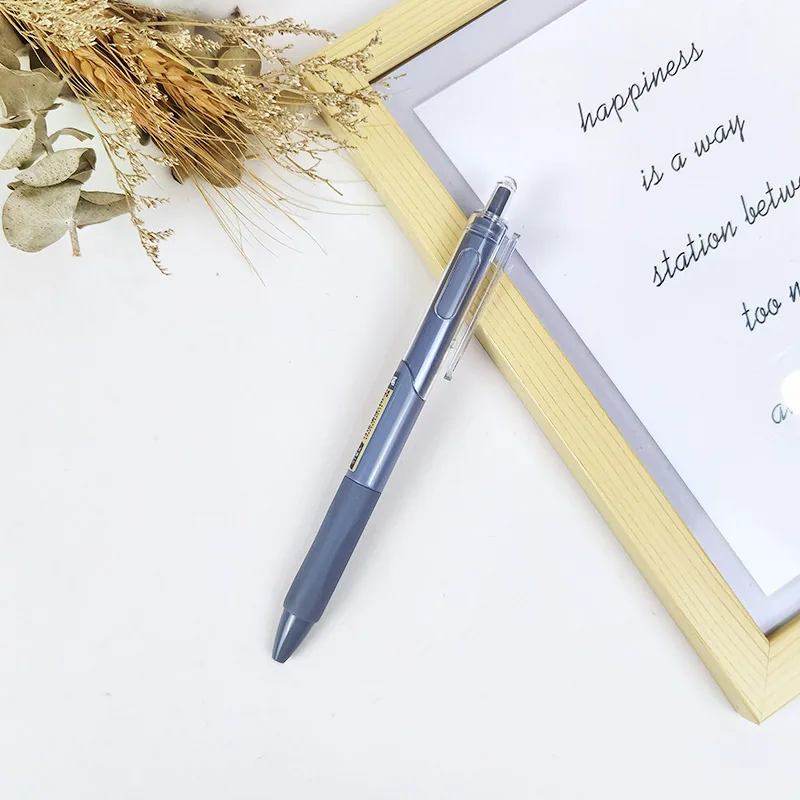 happiness
is a way
station betw
too